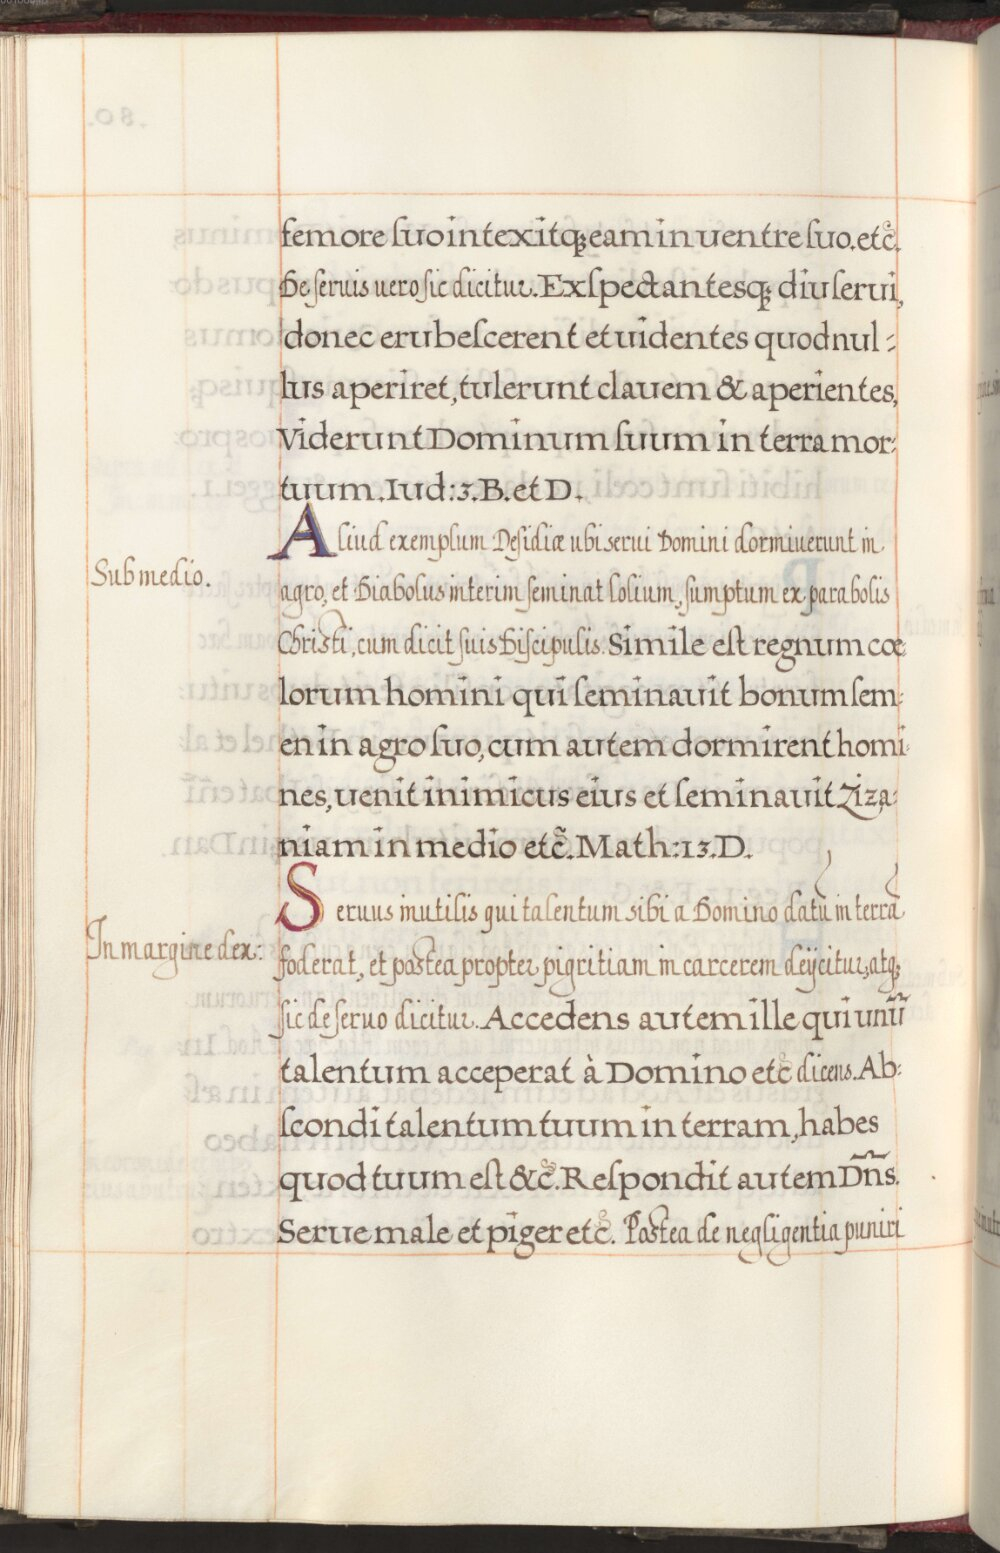 femore suo intexitq; eam in uentre suo. etc̃.
De seruis uero sic dicitur. Exspectantesq; diu serui,
donec erubescerent et uidentes quod nul:
lus aperiret, tulerunt clauem & aperientes,
Viderunt Dominum suum in terra mor:
tuum. Iud: 3. B. et D.
Aliud exemplum Desidiæ ubi serui Domini dormiuerunt in
Sub medio.
agro, et Diabolus interim seminat lolium, sumptum ex parabolis
Christi, cum dicit suis Discipulis. Simile est regnum cœ
lorum homini qui seminauit bonum sem:
en in agro suo, cum autem dormirent homi:
nes, uenit inimicus eius et seminauit Ziza:
niam in medio etc̃. Math: 13. D.
Seruus inutilis qui talentum sibi a Domino datũ in terra
In margine dex:
foderat, et postea propter pigritiam in carcerem deijcitur, atq;
sic de seruo dicitur. Accedens autem ille qui unũ
talentum acceperat à Domino etc̃ dicens. Ab:
scondi talentum tuum in terram, habes
quod tuum est &c̃. Respondit autem Dñs.
Serue male et piger etc̃. Postea de negligentia puniri